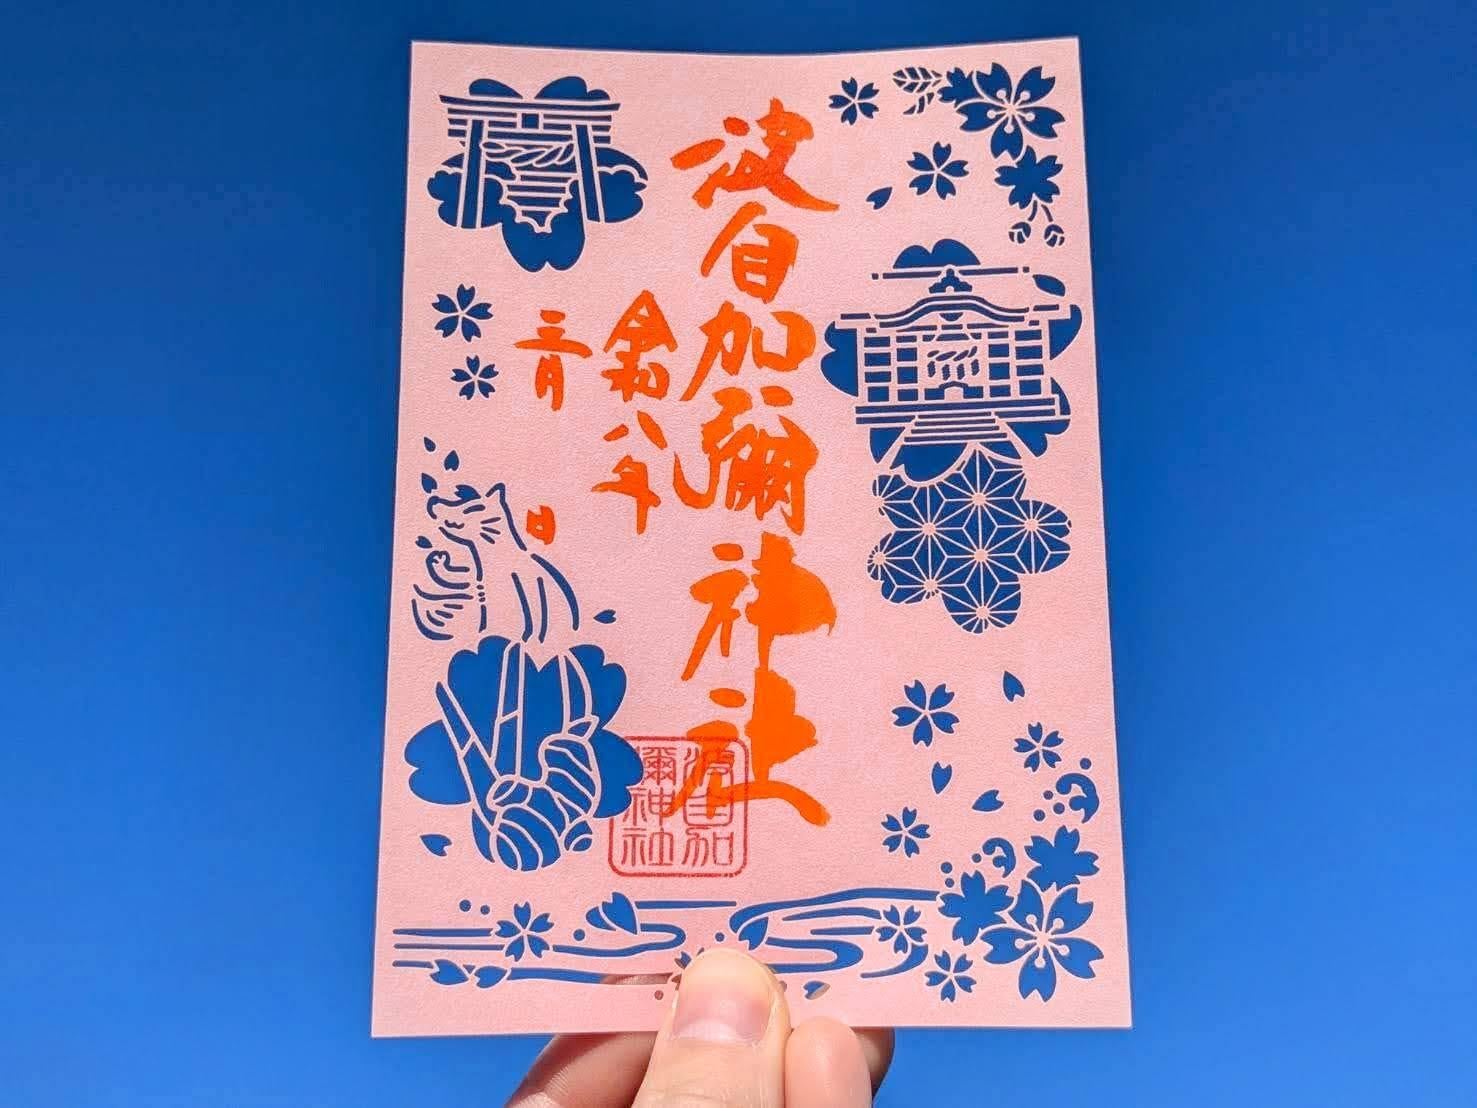 波自加彌神社
令和八年
三月
日
波自加
彌神社